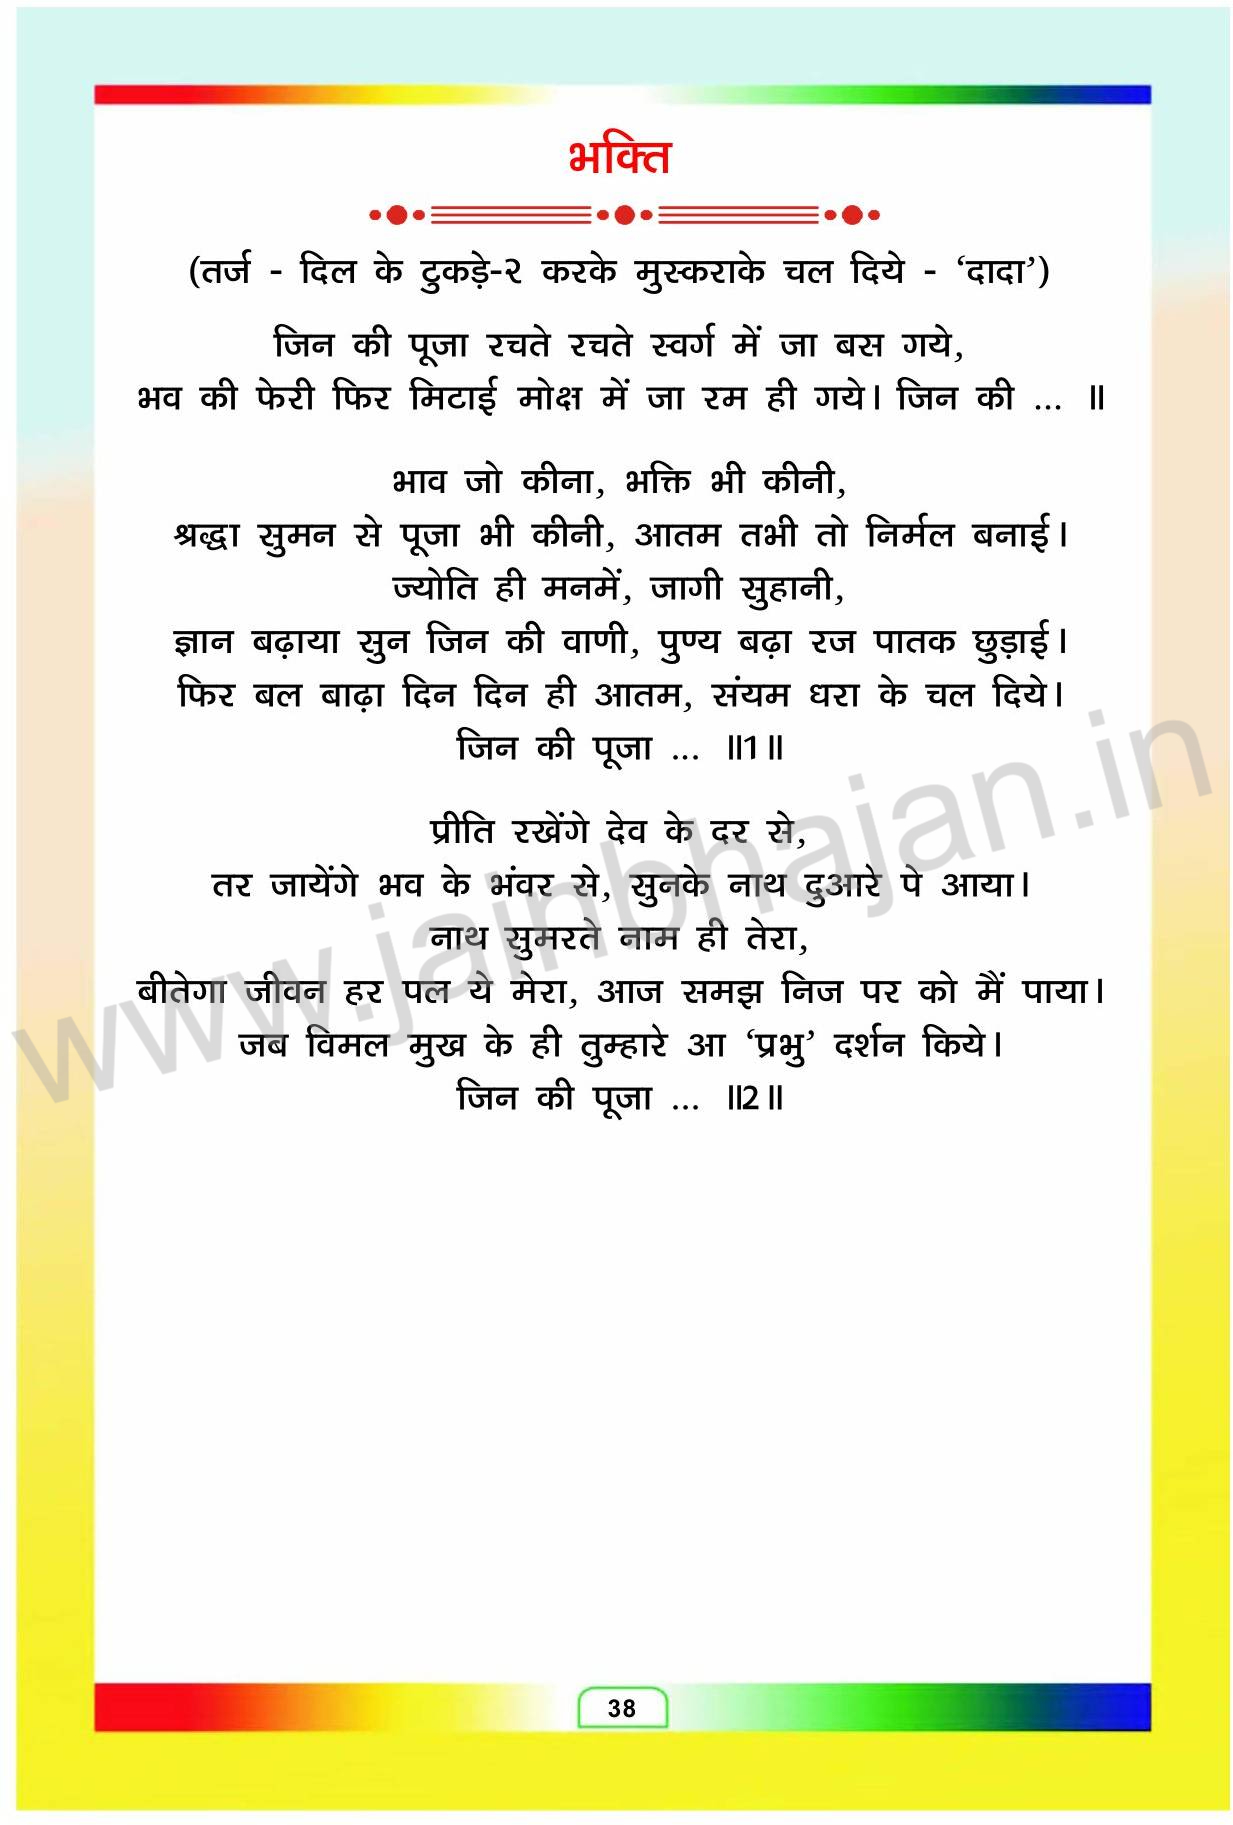 भक्ति
(तर्ज - दिल के टुकड़े-२ करके मुस्कराके चल दिये - ‘दादा’)
जिन की पूजा रचते रचते स्वर्ग में जा बस गये,
भव की फेरी फिर मिटाई मोक्ष में जा रम ही गये। जिन की ... ॥
भाव जो कीना, भक्ति भी कीनी,
श्रद्धा सुमन से पूजा भी कीनी, आतम तभी तो निर्मल बनाई।
ज्योति ही मनमें, जागी सुहानी,
ज्ञान बढ़ाया सुन जिन की वाणी, पुण्य बढ़ा रज पातक छुड़ाई।
फिर बल बाढ़ा दिन दिन ही आतम, संयम धरा के चल दिये।
जिन की पूजा ... ॥1॥
प्रीति रखेंगे देव के दर से,
तर जायेंगे भव के भंवर से, सुनके नाथ दुआरे पे आया।
नाथ सुमरते नाम ही तेरा,
बीतेगा जीवन हर पल ये मेरा, आज समझ निज पर को मैं पाया।
जब विमल मुख के ही तुम्हारे आ ‘प्रभु’ दर्शन किये।
जिन की पूजा ... ॥2॥
www.jainbhajan.in
38